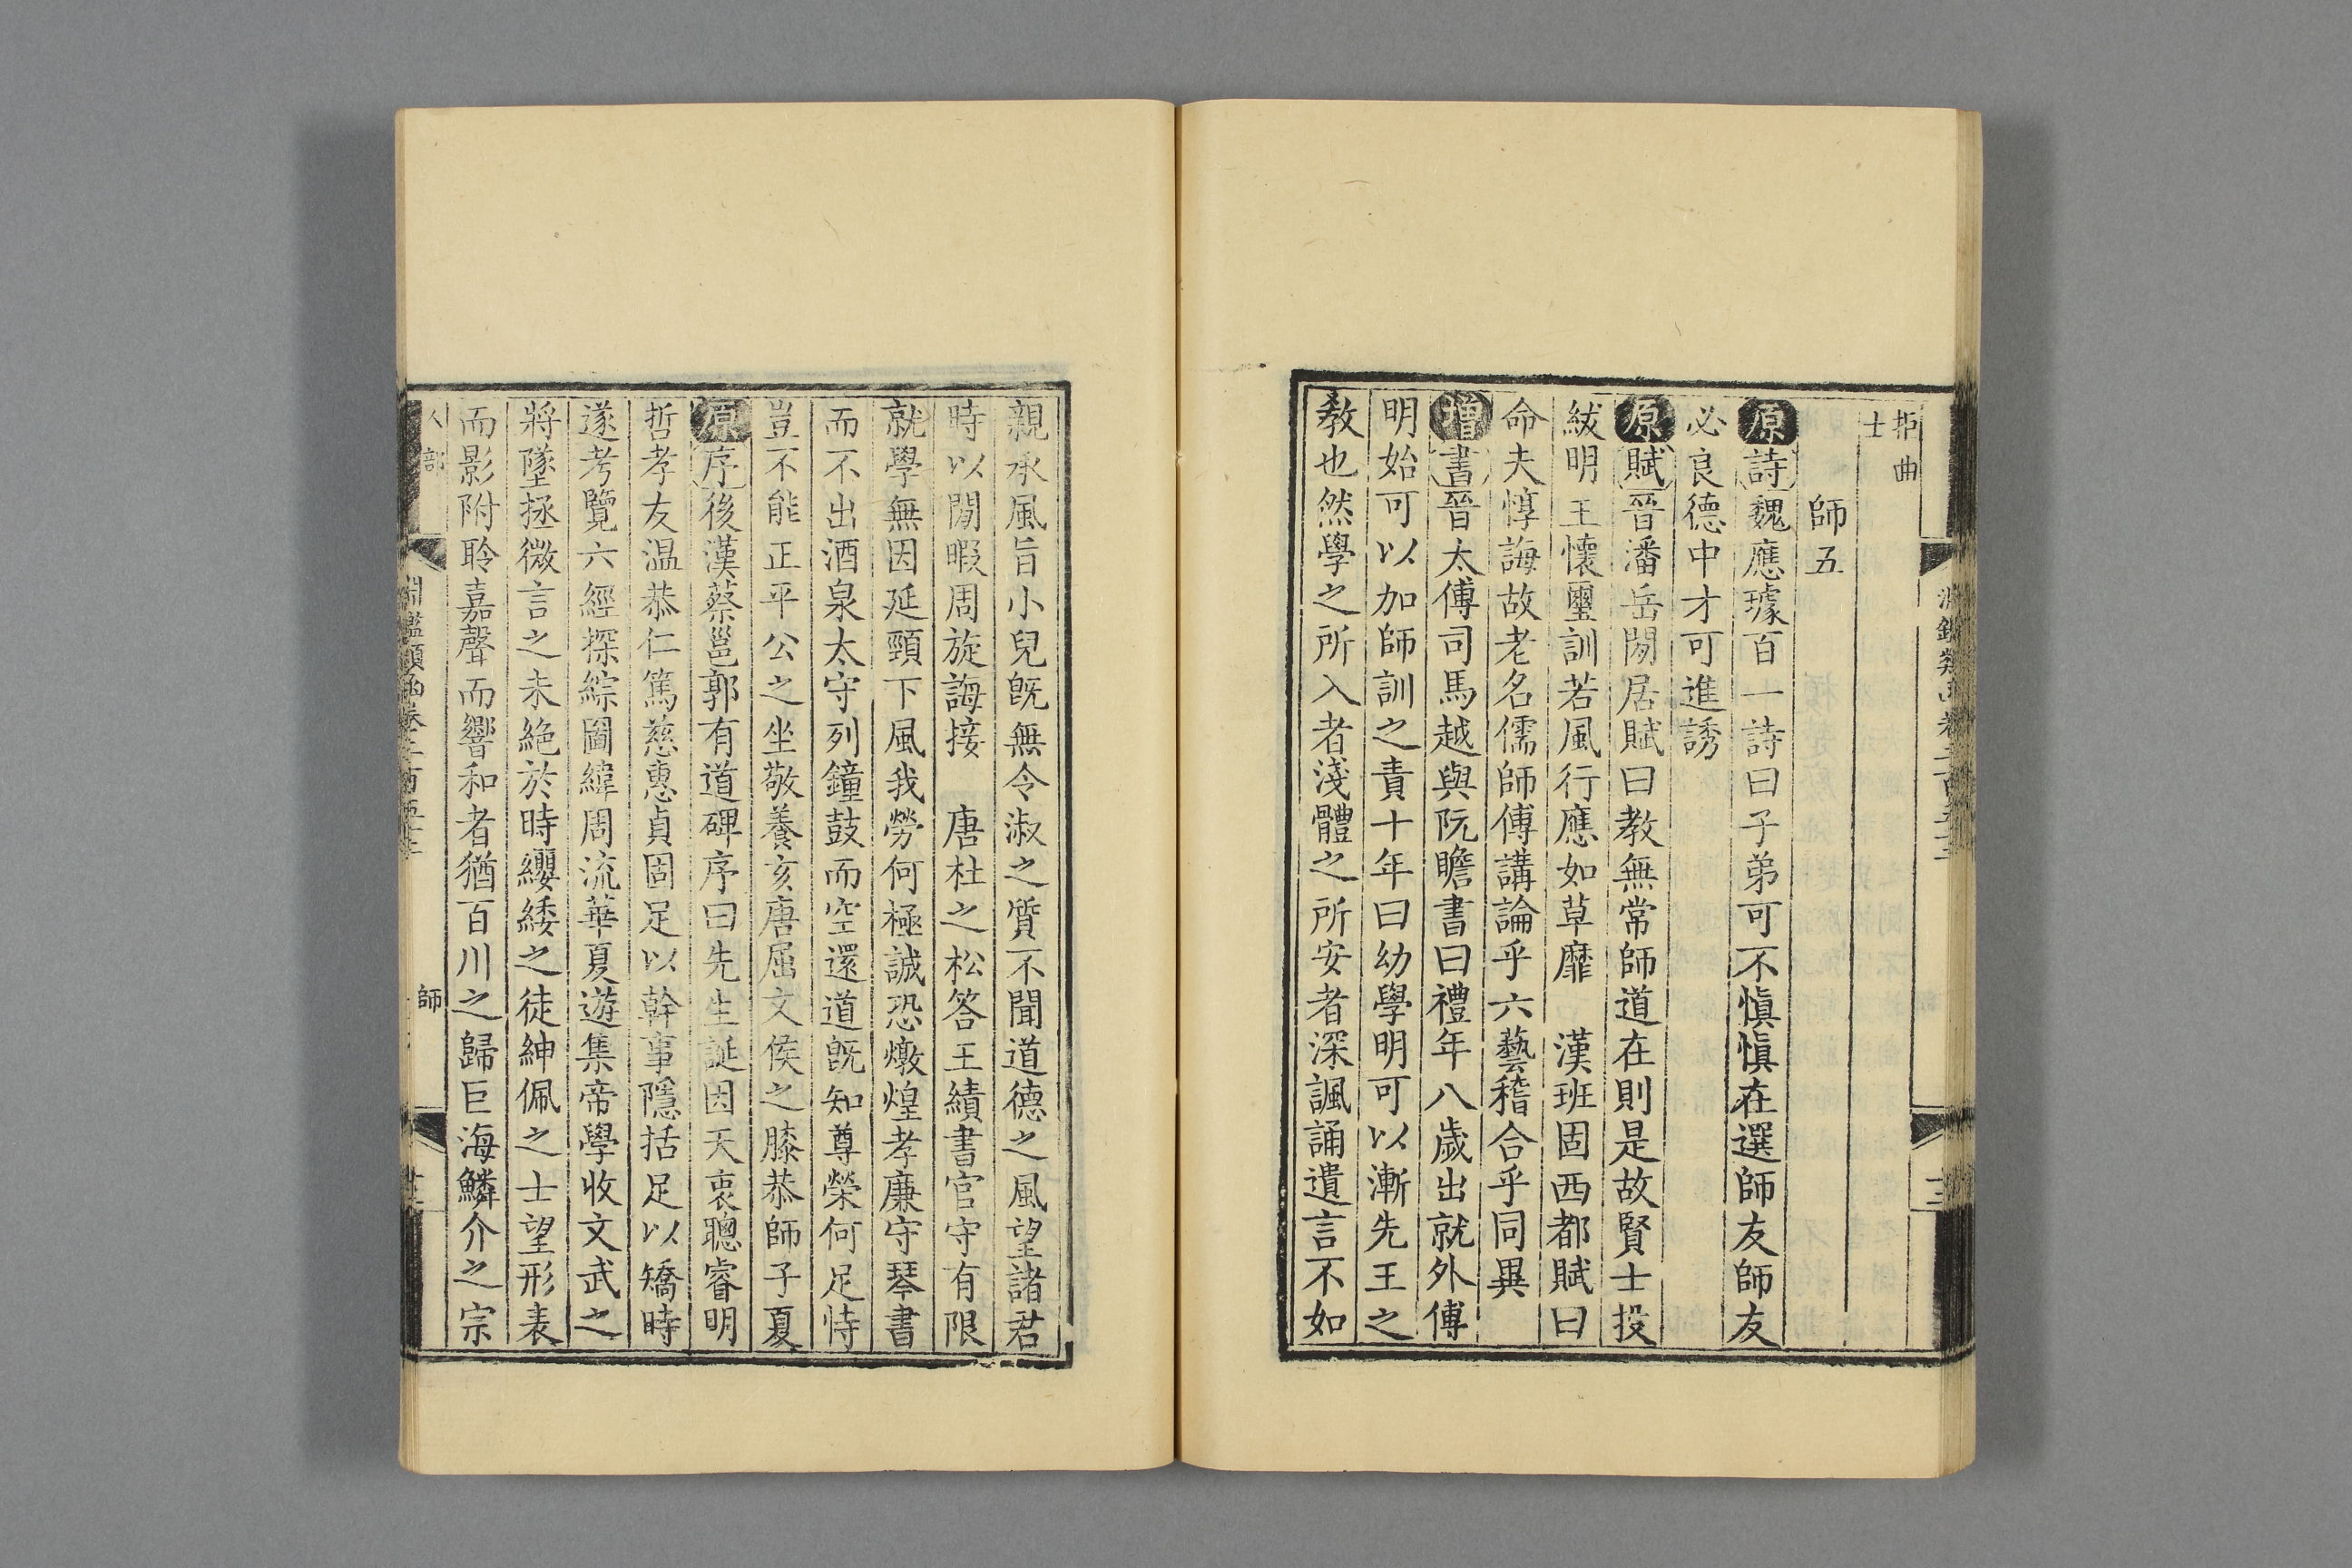 拒曲
士
師五
原詩魏應璩百一詩曰子弟可不愼愼在選師友師友
必良德中才可進誘
原賦晉潘岳閒居賦曰教無常師道在則是故賢士投
紱明王懷璽訓若風行應如草靡　漢班固西都賦曰
命夫惇誨故老名儒師傅講論乎六藝稽合乎同異
增書晉太傅司馬越與阮瞻書曰禮年八歲出就外傅
明始可以加師訓之責十年曰幼學明可以漸先王之
教也然學之所入者淺體之所安者深諷誦遺言不如
親承風旨小兒旣無令淑之質不聞道德之風望諸君
時以閒暇周旋誨接　唐杜之松答王績書官守有限
就學無因延頸下風我勞何極誠恐燉煌孝廉守琴書
而不出酒泉太守列鐘鼓而空還道旣知尊榮何足恃
豈不能正平公之坐敬養亥唐屈文侯之膝恭師子夏
原序後漢蔡邕郭有道碑序曰先生誕因天衷聰睿明
哲孝友温恭仁篤慈惠貞固足以幹事隱括足以矯時
遂考覽六經探綜圖緯周流華夏遊集帝學收文武之
將墜拯微言之未絶於時纓緌之徒紳佩之士望形表
而影附聆嘉聲而響和者猶百川之歸巨海鱗介之宗
人部
淵鑑類函卷二百五十三
師